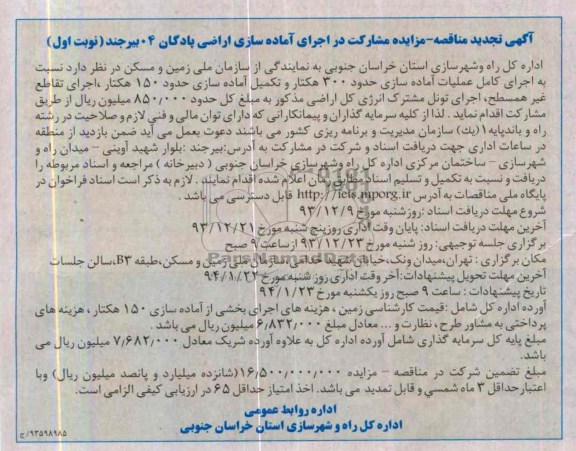 آگهی تجدید مناقصه-مزایده مشارکت در اجرای آماده سازی اراضی پادگان ۰۴ بیرجند (نوبت اول)
اداره کل راه وشهرسازی استان خراسان جنوبی به نمایندگی از سازمان ملی زمین و مسکن در نظر دارد نسبت
به اجرای کامل عملیات آماده سازی حدود ۳۰۰ هکتار و تکمیل آماده سازی حدود ۱۵۰ هکتار ،اجرای تقاطع
غیر همسطح، اجرای تونل مشترک انرژی کل اراضی مذکور به مبلغ کل حدود ۸۵۰٫۰۰۰ میلیون ریال از طریق
مشارکت اقدام نماید . لذا از کلیه سرمایه گذاران و پیمانکارانی که دارای توان مالی و فنی لازم و صلاحیت در رشته
راه و باندپایه۱(یك) سازمان مدیریت و برنامه ریزی کشور می باشند دعوت بعمل می آید ضمن بازدید از منطقه
در ساعات اداری جهت دریافت اسناد و شرکت در مشارکت به آدرس:بیرجند :بلوار شهید آوینی - میدان راه و
شهرسازی - ساختمان مرکزی اداره کل راه وشهرسازی خراسان جنوبی ( دبیرخانه ) مراجعه و اسناد مربوطه را
دریافت و نسبت به تکمیل و تسلیم اسناد مطابق زمان اعلام شده اقدام نمایند . لازم به ذکر است اسناد فراخوان در
پایگاه ملی مناقصات به آدرس http://iets.mporg.ir قابل دسترسی می باشد .
شروع مهلت دریافت اسناد :روزشنبه مورخ ۹۳/۱۲/۹
آخرین مهلت دریافت اسناد: پایان وقت اداری روزپنج شنبه مورخ ۹۳/۱۲/۲۱
برگزاری جلسه توجیهی: روز شنبه مورخ ۹۳/۱۲/۲۳ ازساعت ۹ صبح
مکان برگزاری : تهران،میدان ونک،خیابان شهید خدامی،سازمان ملی زمین و مسکن،طبقه B۳،سالن جلسات
آخرین مهلت تحویل پیشنهادات:آخر وقت اداری روز شنبه مورخ ۹۴/۱/۲۲
تاریخ پیشنهادات : ساعت ۹ صبح روز یکشنبه مورخ ۹۴/۱/۲۳
آورده اداره کل شامل :قیمت کارشناسی زمین ، هزینه های اجرای بخشی از آماده سازی ۱۵۰ هکتار ، هزینه های
پرداختی به مشاور طرح ، نظارت و ... معادل مبلغ ۶٫۸۳۲٫۰۰۰ میلیون ریال می باشد .
مبلغ پایه کل سرمایه گذاری شامل آورده اداره کل به علاوه آورده شریک معادل ۷٫۶۸۲٫۰۰۰ میلیون ریال می
باشد.
مبلغ تضمین شرکت در مناقصه - مزایده ۱۶٫۵۰۰٫۰۰۰٫۰۰۰(شانزده میلیارد و پانصد میلیون ریال) وبا
اعتبار حداقل ۳ ماه شمسی و قابل تمدید می باشد. اخذ امتیاز حداقل ۶۵ در ارزیابی کیفی الزامی است.
اداره روابط عمومی
اداره کل راه و شهرسازی استان خراسان جنوبی
۹۳۵۹۸۹۸۵/ج